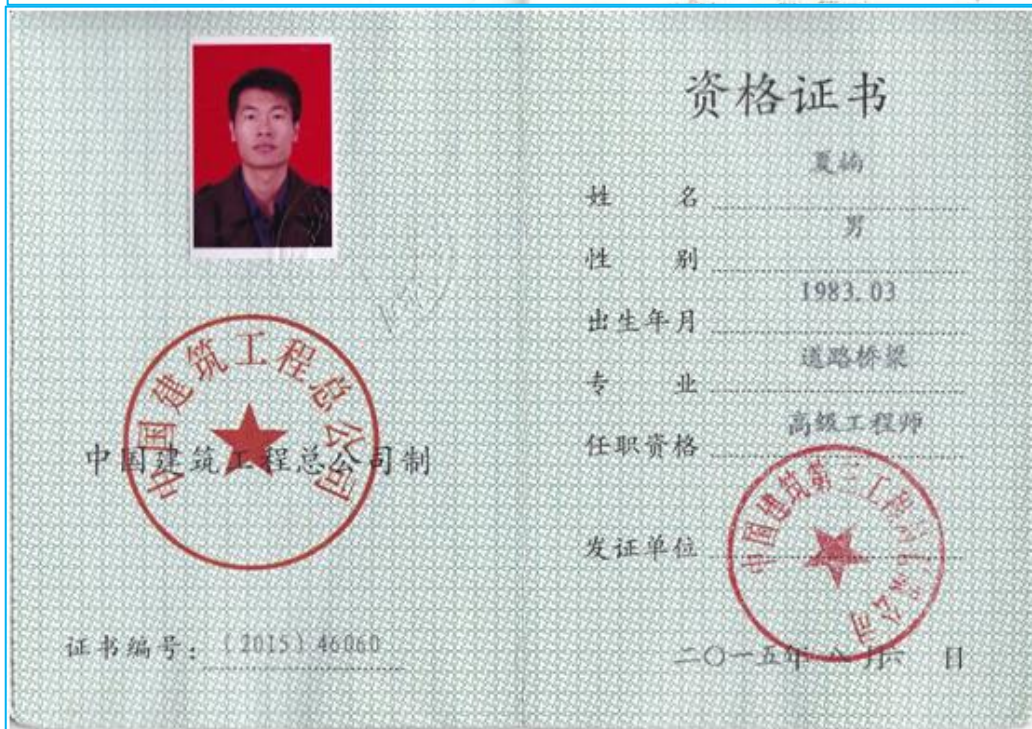 中国建筑工程总公司
中国建筑工程总公司制
证书编号：（2015）46060
资格证书
姓 名 夏
性 别 男
出生年月 1983.03
专 业 道路桥梁
任职资格 高级工程师
发证单位
中国建筑第三工程局有限公司
二〇一五年 八 月六 日